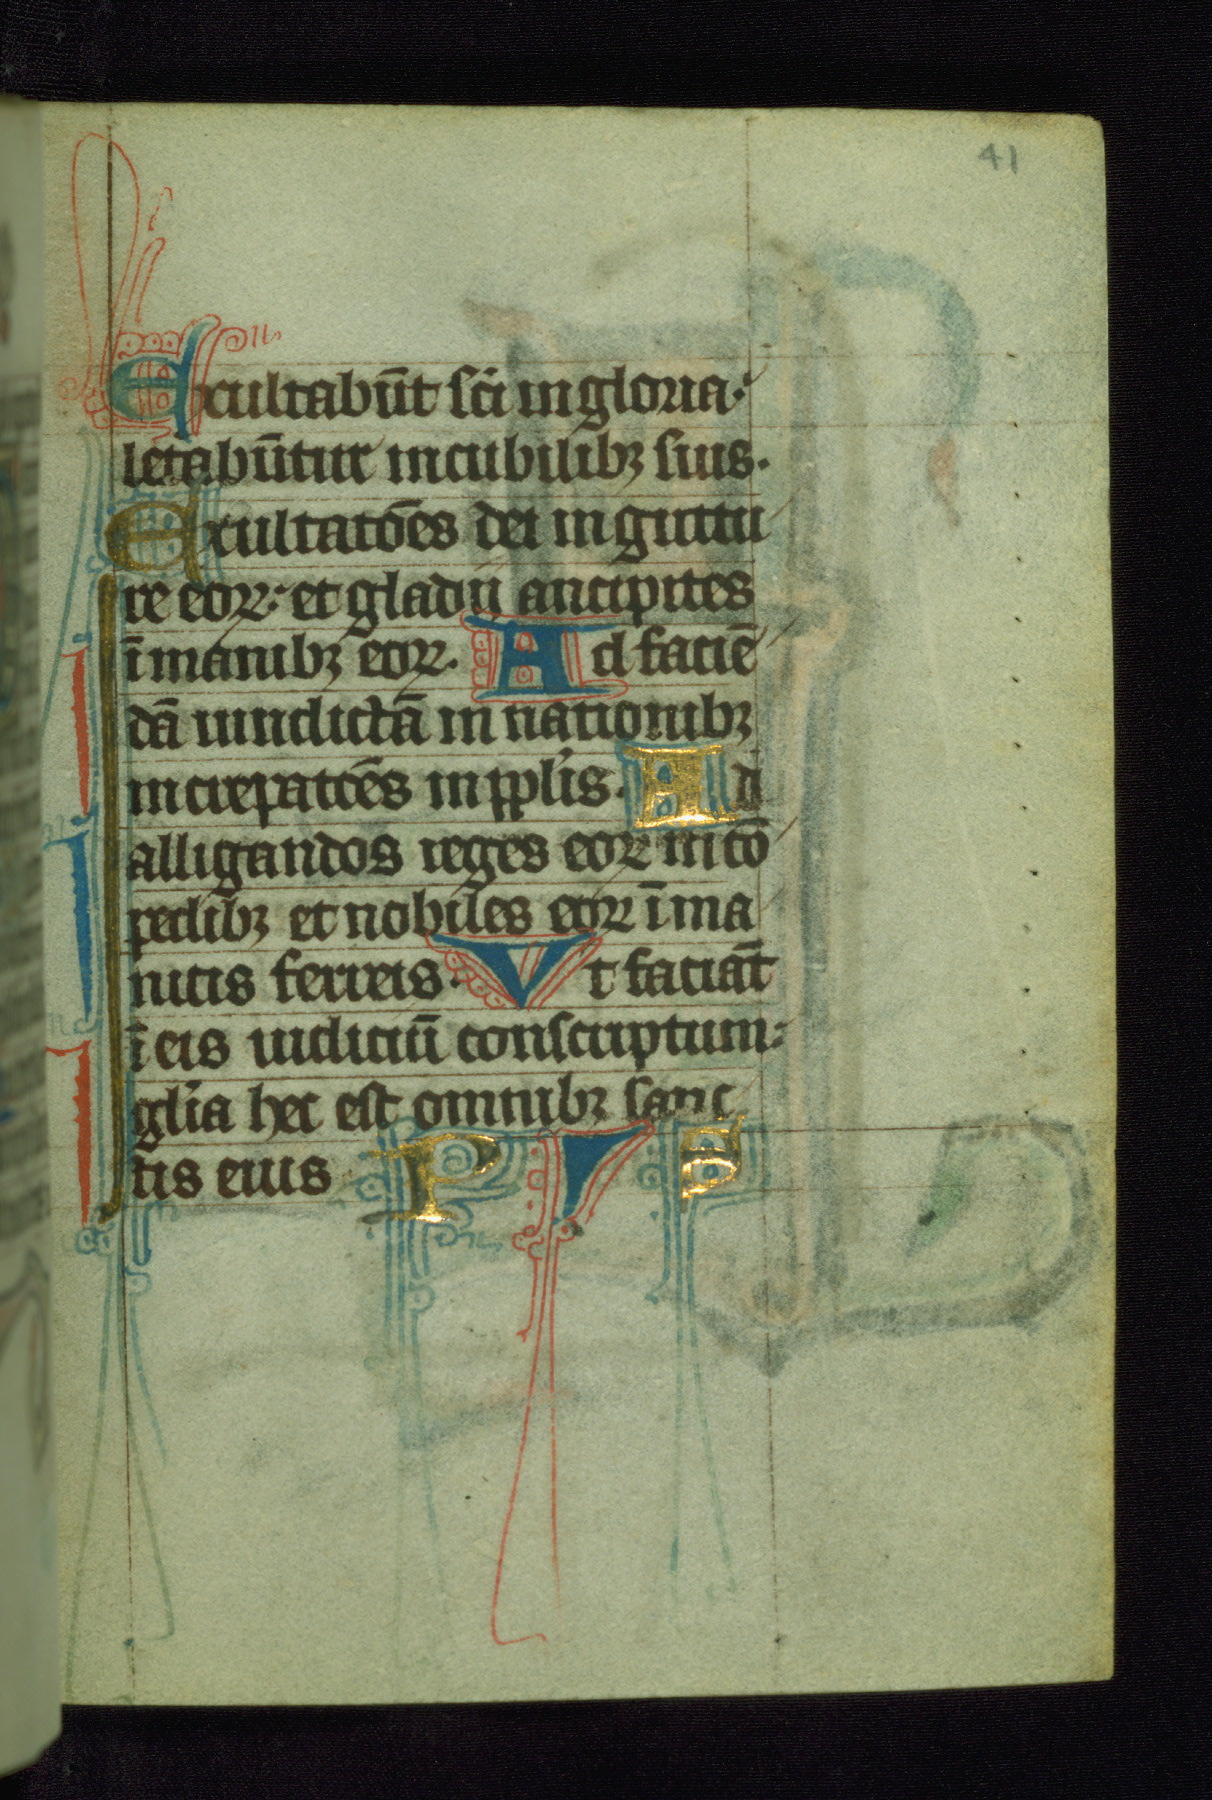 41
Excultabūt sci in gloria·
letabūtur in cubilibꝫ suis·
Exultatōēs dei in guttu
re eoꝝ· et gladii ancipites
ī manibꝫ eoꝝ· Ad faciē
dā uindictā in nationibꝫ
increpatiōēs in pplis· Ad
alligandos reges eoꝝ in cō
pedibꝫ et nobiles eoꝝ ī ma
nicis ferreis· Vt faciāt
ī eis iudiciū conscriptum·
glia hec est omnibꝫ sanc
tis eius